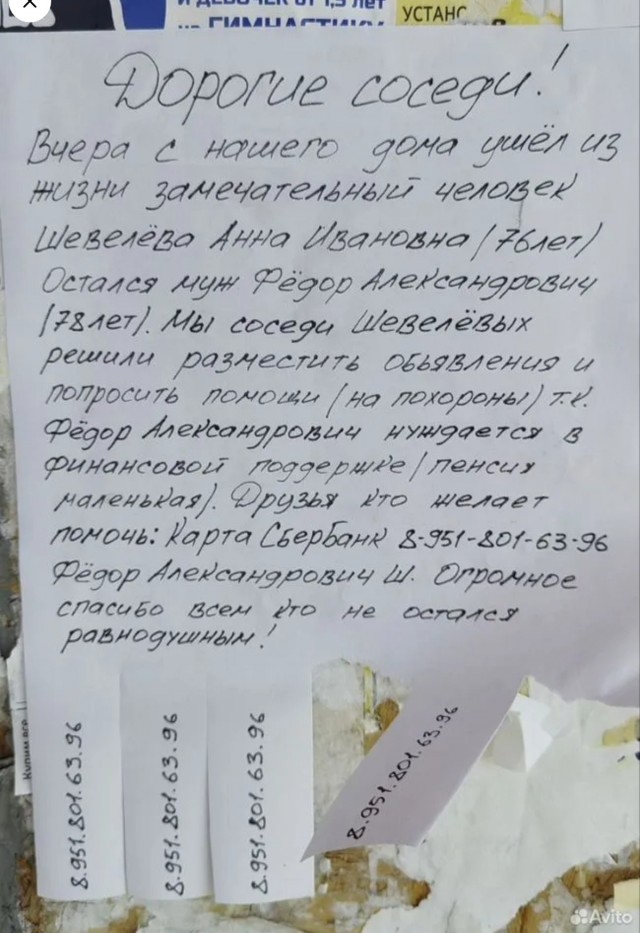 И ДЕВОЧЕК ОТ 1,5 лет
ГИМНАСТИКУ
УСТАНС
Дорогие соседи!
Вчера с нашего дома ушёл из
жизни замечательный человек
Шевелёва Анна Ивановна (76лет)
Остался муж Фёдор Александрович
(78лет). Мы соседи Шевелёвых
решили разместить обьявления и
попросить помощи (на похороны) т.к.
Фёдор Александрович нуждается в
финансовой поддержке (пенсия
маленькая). Друзья кто желает
помочь: Карта Сбербанк 8-951-801-63-96
Фёдор Александрович Ш. Огромное
спасибо всем кто не остался
равнодушным!
8.951.801.63.96
8.951.801.63.96
8.951.801.63.96
8.951.801.63.96
Avito